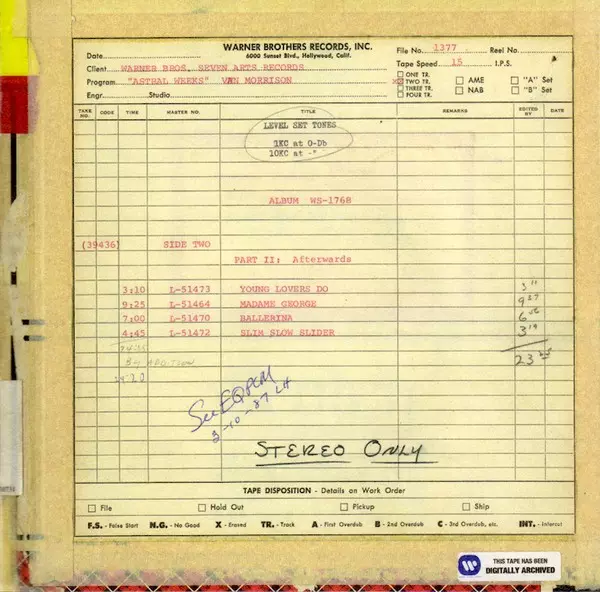 WARNER BROTHERS RECORDS, INC.
6000 Sunset Blvd., Hollywood, Calif.
Date
File No. 1377 Reel No.
Client WARNER BROS. SEVEN ARTS RECORDS
Tape Speed 15 I.P.S.
Program "ASTRAL WEEKS" VAN MORRISON
ONE TR.
TWO TR.
THREE TR.
FOUR TR.
AME
NAB
"A" Set
"B" Set
Engr. Studio
TAKE NO. CODE TIME MASTER NO. TITLE REMARKS EDITED BY DATE
LEVEL SET TONES
1KC at 0-Db
10KC at -"
ALBUM WS-1768
(39436) SIDE TWO
PART II: Afterwards
3:10 L-51473 YOUNG LOVERS DO
9:25 L-51464 MADAME GEORGE 9 27
7:00 L-51470 BALLERINA
4:45 L-51472 SLIM SLOW SLIDER 3 19
ADDITION
23
See EQ PCM
2-10-87 LH
STEREO ONLY
TAPE DISPOSITION - Details on Work Order
File Hold Out Pickup Ship
F.S. - False Start N.G. - No Good X - Erased TR. - Track A - First Overdub B - 2nd Overdub C - 3rd Overdub, etc. INT. - Intercut
THIS TAPE HAS BEEN
DIGITALLY ARCHIVED